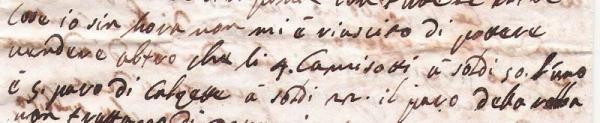 Cose io sin hora non mi è riuscito di potere
vendere altro che li 4. Camisotti à soldi 50. l'uno
è 5. paro di Calzette à soldi 22. il paro della robba
non